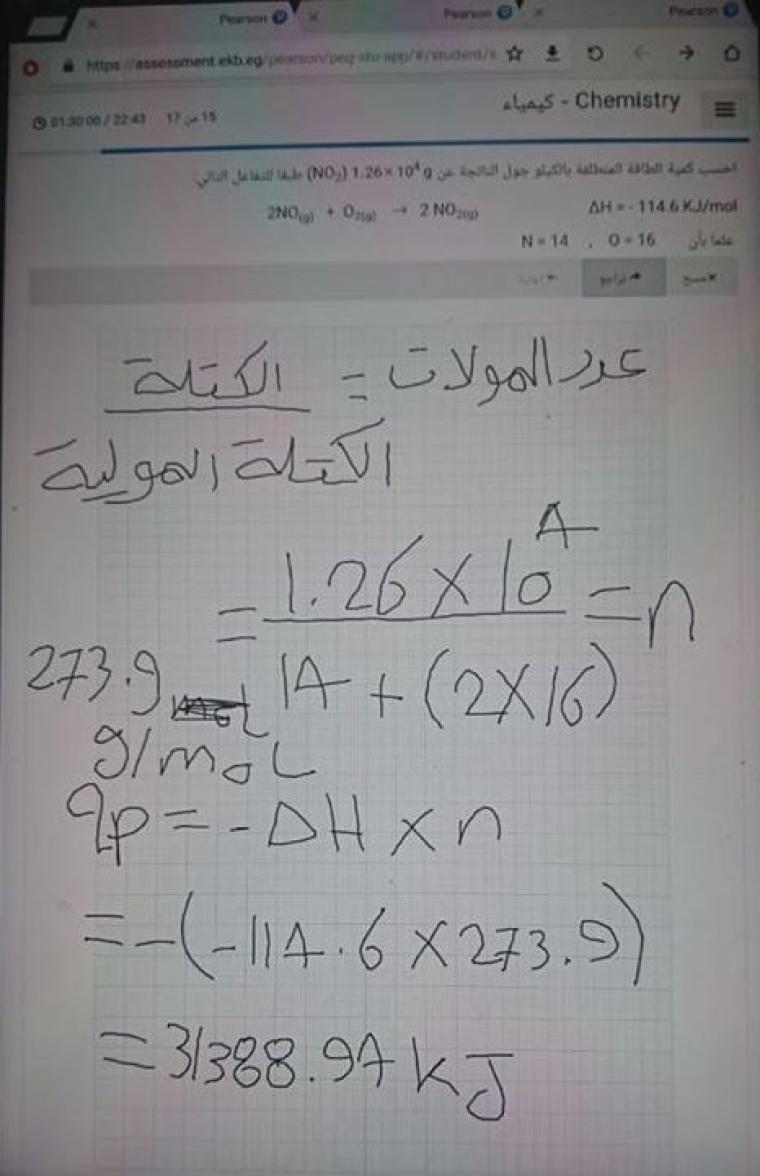 Pearson Pearson Pearson
https://assessment.ekb.eg/pearson/peg-stu-app/#/student/s
كيمياء - Chemistry
15 من 17 01:30:00 / 22:43
احسب كمية الطاقة المنطلقة بالكيلو جول الناتجة عن 1.26×10⁴ g (NO₂) طبقا للتفاعل التالي:
2NO(g) + O2(g) → 2 NO2(g) ΔH = - 114.6 KJ/mol
علما بأن N = 14 , O = 16
مسح تراجع إعادة
عدد المولات = الكتلة
الكتلة المولية
= 1.26 × 10⁴ = n
14 + (2×16)
273.9
g/mol
qp = - ΔH × n
= - (-114.6 × 273.9)
= 31388.94 kJ